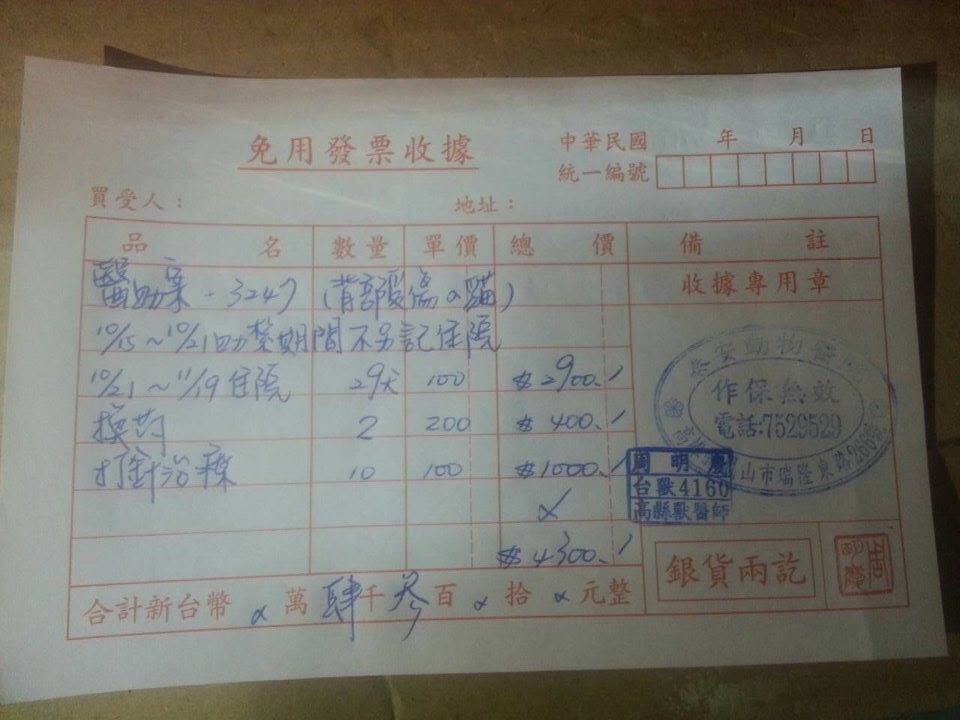 免用發票收據
中華民國 年 月 日
統一編號
買受人： 地址：
品名 數量 單價 總價 備註
醫助案-3247 (背部受傷の貓)
收據專用章
10/15~10/21助紮期間不另記住院
10/21~11/19住院 29天 100 $2900.-
換葯 2 200 $400.-
打針治療 10 100 $1000.-
動物
作保無效
電話:7529529
山市瑞隆東路260號
周明慶
台獸4160
高縣獸醫師
$4300.-
銀貨兩訖
周明慶
合計新台幣 萬肆千參百 拾 元整